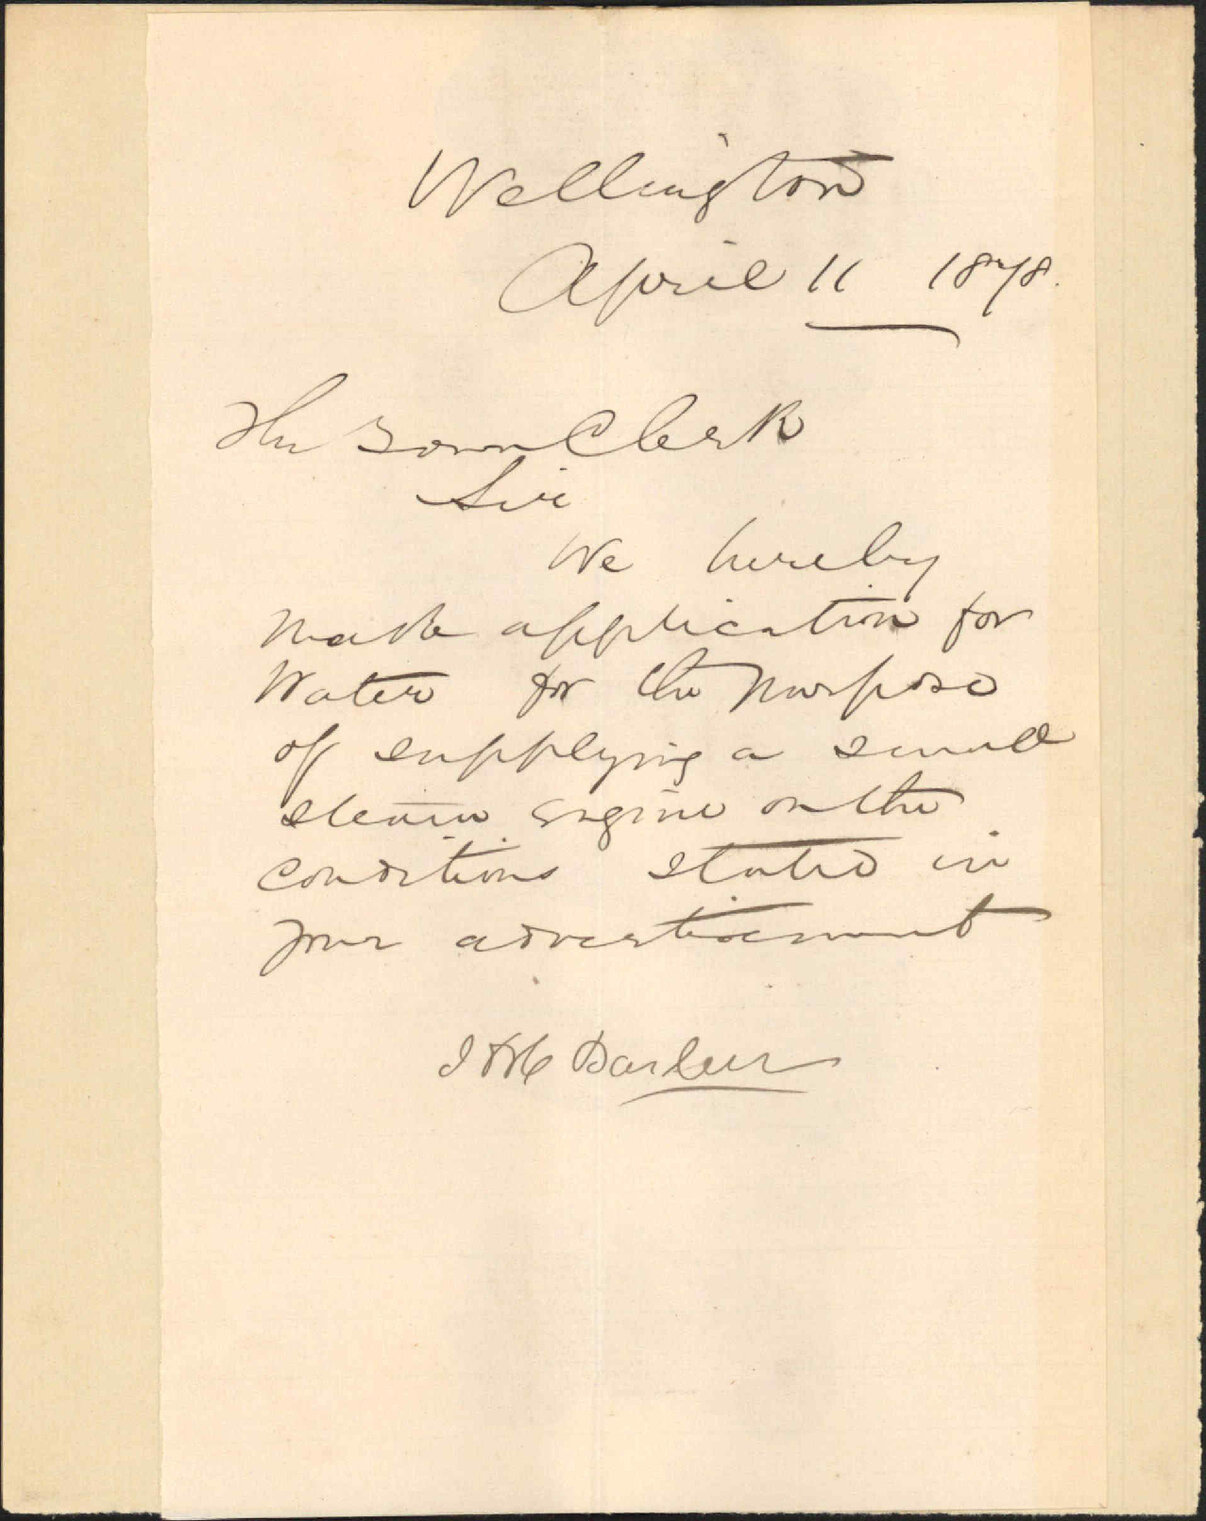 Wellington
April 11 1878.
The Town Clerk
Sir
We hereby
make application for
Water for the purpose
of supplying a small
steam engine on the
conditions stated in
your advertisement
J & C Barber